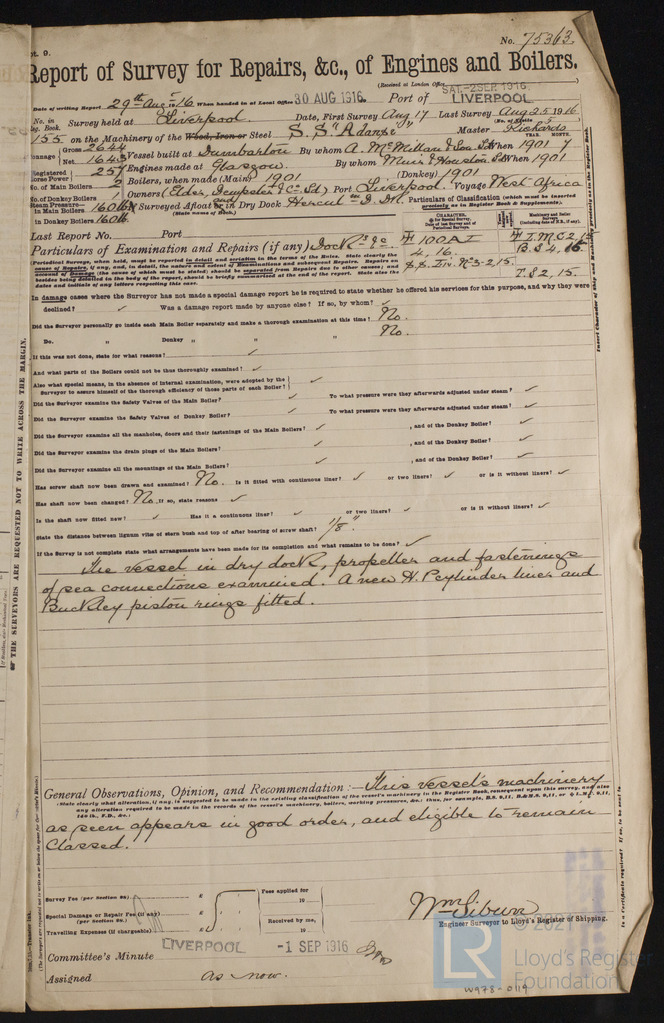 pt. 9.
No. 75363.
Report of Survey for Repairs, &c., of Engines and Boilers.
(Received at London Office SAT. 2 SEP. 1916
Date of writing Report 29th Aug 1916 When handed in at Local Office 30 AUG 1916 Port of LIVERPOOL
No. in Reg. Book. Survey held at Liverpool Date, First Survey Aug 17 Last Survey Aug 25 1916
155 on the Machinery of the Wood, Iron or Steel S.S. "Adansi" Master Richards
Tonnage Gross 2644 Net 1643 Vessel built at Dumbarton By whom A. McMillan & Son Ld When 1901 7
Registered Horse Power 257 Engines made at Glasgow By whom Muir & Houston Ld When 1901
No. of Main Boilers 2 Boilers, when made (Main) 1901 (Donkey) 1901
No. of Donkey Boilers 1 Owners (Elder, Dempster & Co. Ld) Port Liverpool Voyage West Africa
Steam Pressure in Main Boilers 160 lb Surveyed Afloat and or in Dry Dock
in Donkey Boilers 160 lb (State name of Dock.)
Particulars of Classification (which must be inserted precisely as in Register Book & Supplements).
Last Report No. Port
Particulars of Examination and Repairs (if any) Dock &c
100 A1 L.M.C. 2,15
4,16. B.S. 4,16
S.S. Liv. No 3-2,15. T.S 2,15.
In damage cases where the Surveyor has not made a special damage report he is required to state whether he offered his services for this purpose, and why they were
declined? ✓ Was a damage report made by anyone else? If so, by whom? ✓
Did the Surveyor personally go inside each Main Boiler separately and make a thorough examination at this time? No.
Do. " Donkey " " " No.
If this was not done, state for what reasons? ✓
And what parts of the Boilers could not be thus thoroughly examined? ✓
Also what special means, in the absence of internal examination, were adopted by the
Surveyor to assure himself of the thorough efficiency of those parts of each Boiler? ✓
Did the Surveyor examine the Safety Valves of the Main Boiler? ✓ To what pressure were they afterwards adjusted under steam? ✓
Did the Surveyor examine the Safety Valves of Donkey Boiler? ✓ To what pressure were they afterwards adjusted under steam? ✓
Did the Surveyor examine all the manholes, doors and their fastenings of the Main Boilers? ✓ , and of the Donkey Boiler? ✓
Did the Surveyor examine the drain plugs of the Main Boilers? ✓ , and of the Donkey Boiler? ✓
Did the Surveyor examine all the mountings of the Main Boilers? ✓ , and of the Donkey Boiler? ✓
Has screw shaft now been drawn and examined? No. Is it fitted with continuous liner? ✓ or two liners? ✓ or is it without liners? ✓
Has shaft now been changed? No. If so, state reasons ✓
Is the shaft now fitted new? ✓ Has it a continuous liner? ✓ or two liners? ✓ or is it without liners? ✓
State the distance between lignum vitæ of stern bush and top of after bearing of screw shaft? 1/8"
If the Survey is not complete state what arrangements have been made for its completion and what remains to be done? ✓
The vessel in dry dock, propeller and fastenings
of sea connections examined. A new H.P. cylinder liner and
Buckley piston rings fitted.
General Observations, Opinion, and Recommendation:— This vessel's machinery
(State clearly what alteration, if any, is suggested to be made in the existing classification of the vessel's machinery in the Register Book, consequent upon this survey, and also
any alteration required to be made in the records of the vessel's machinery, boilers, working pressures, &c.; thus, for example, B.S. 9,11, B.&M.S. 9,11, or L.M.C. 9,11,
140 lb., F.D., &c.)
as seen appears in good order, and eligible to remain
classed.
Survey Fee (per Section 28) £ Fees applied for 19
Special Damage or Repair Fee (if any) £
(per Section 28.)
Travelling Expenses (if chargeable) £ Received by me, 19
Wm Siburn
Engineer Surveyor to Lloyd's Register of Shipping.
Committee's Minute LIVERPOOL - 1 SEP 1916
Assigned as now.
THE SURVEYORS ARE REQUESTED NOT TO WRITE ACROSS THE MARGIN.
LR
© 2021
Lloyd's Register
Foundation
W978-0119